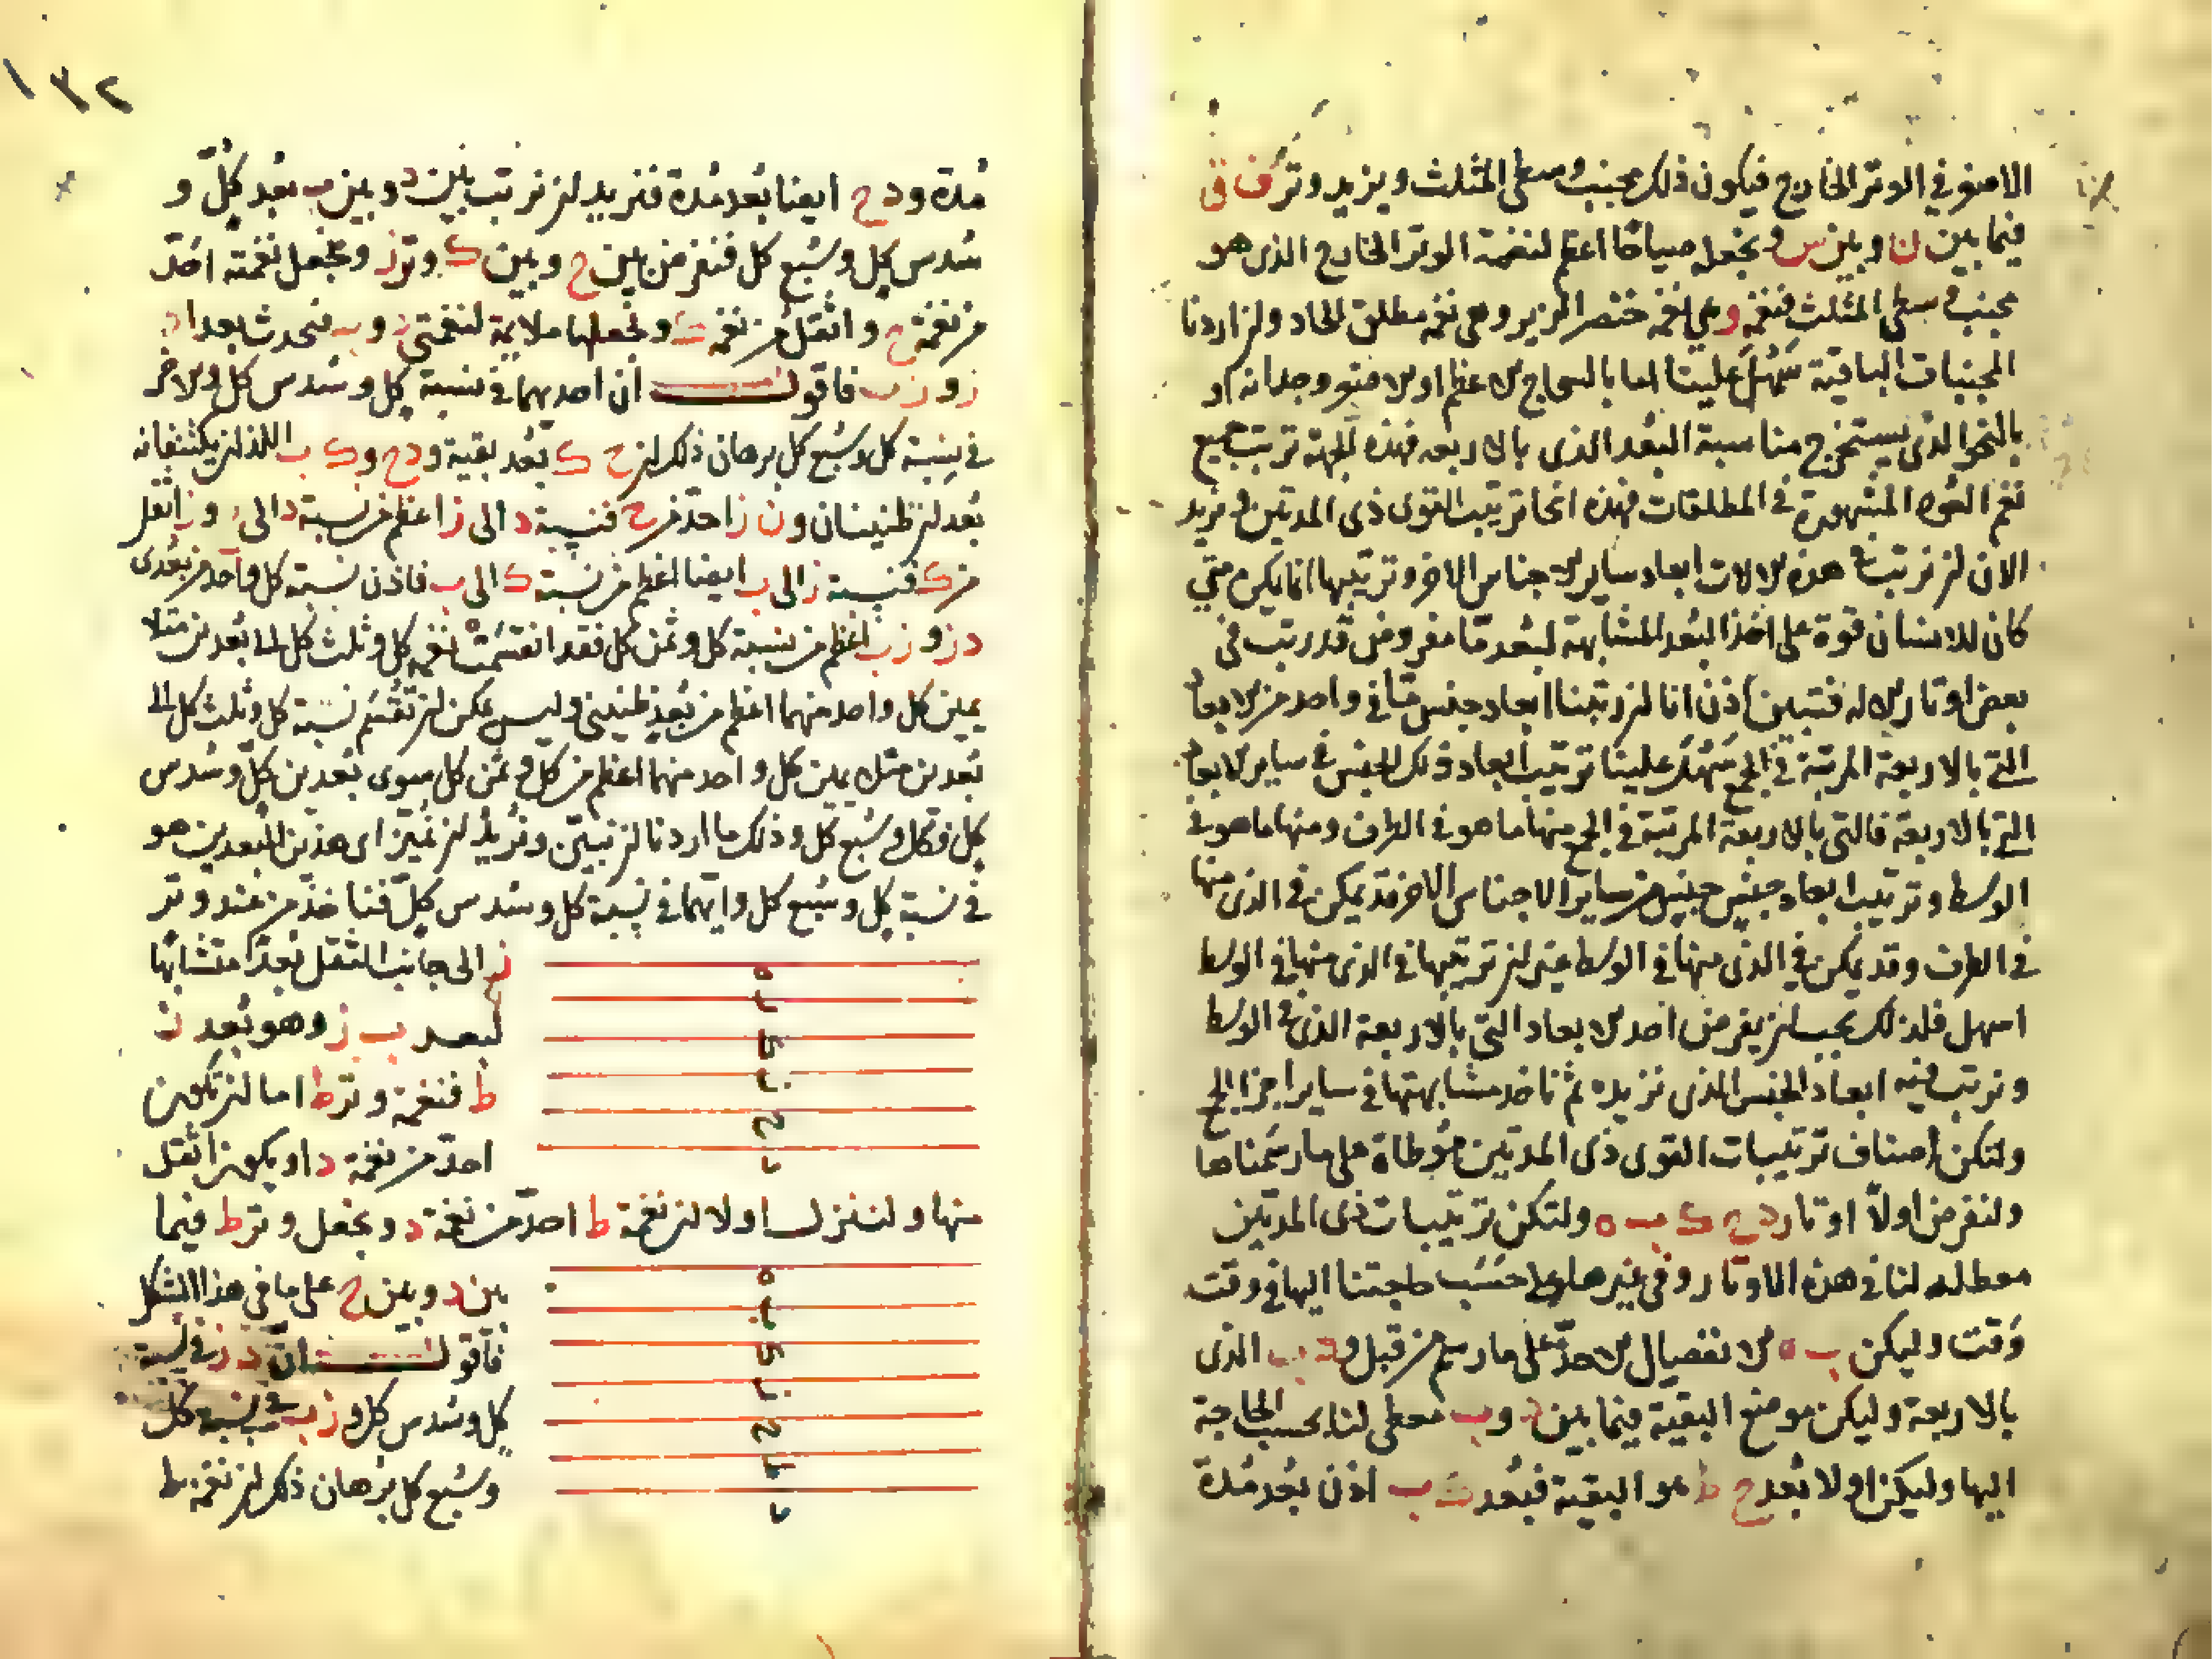 الاصغر في الوتر الخارج فيكون ذلك مجنب وسطى المثلث ويزيد وتر ف في
فيما بين ن وبين س ونجعله صياحا اعظم لنغمة الوتر الخارج الذى هو
مجنب وسطى المثلث فنغمة و هى نغمة خنصر الزير وهى نغمة مطلق الحاد ولن اردنا
المجنبات الباقية سهل علينا اما بالسجاح الاعظم او الاصغر وجدانه او
بالنحو الذى يستخرج مناسبة البعد الذى بالاربعه فهذه الجهة ترتب جميع
نغم القوه المشهورة في المطلقات فهذه انحا ترتيب القوى ذى المدتين ونريد
الان لنرتب هذه الالات ابعاد ساير الاجناس الاخر وترتيبها انما يكون متى
كان للانسان قوة على اخذ البعد المشابهة لبعد ما مفروض قد رتب في
بعض اوتار الاله فتبين اذن انا لن رتبنا ابعاد جنس ما في واحد من الابعاد
التى بالاربعة المرتبة في الجمع سهل علينا ترتيب ابعاد ذلك الجنس في ساير الابعاد
التى بالاربعة فالتى بالاربعة المرتبة في الجمع منها ما هو في الطرف ومنها ما هو في
الوسط وترتيب ابعاد جنس جنس من ساير الاجناس الاخر قد يمكن في الذى منها
في الطرف وقد يمكن في الذى منها في الوسط غير لن ترتيبها في الذى منها في الوسط
اسهل فلذلك يجب لن يفرض احد الابعاد التى بالاربعة الذى في الوسط
ونرتب فيه ابعاد الجنس الذى نزيده ثم ناخذ مشابهتها في ساير اجزا الجمع
ولتكن اصناف ترتيبات القوى ذى المدتين موطاة على ما رسمناها
ولنفرض اولا اوتار د ح ك ب ه ولتكن ترتيبات ذى المدتين
معطاه لنا في هذه الاوتار وفي غيرها على حسب حاجتنا اليها في وقت
وقت وليكن ب ه الانفصال الاحد على ما رسم من قبل و د ب الذى
بالاربعة وليكن موضع البقية فيما بين د و ب معطى لنا بحسب الحاجة
اليها وليكن اولا بعد ح ط هو البقية فبعد ك ب اذن بعد مدة
١٣٢
مدة و د ح ايضا بعد مدة فنريد لن نرتب بين د وبين ب بعد كل و
سدس كل وسبع كل فنفرض بين ح وبين ك وتر ز ونجعل نغمته احد
من نغمة ح واثقل من نغمة ك ونجعلها ملايمة لنغمتى د و ب فيحدث بعدا د
ز و ز ب فاقول ان احدهما في نسبة كل وسدس كل والاخر
في نسبة كل وسبع كل برهان ذلك لن ح ك بعد بقية و د ح و ك ب اللذان يكتنفانه
بعدان طنينيان و ن ز احد من ح فنسبة د الى ز اعظم من نسبة د الى ح و ز اثقل
من ك فنسبة ز الى ب ايضا اعظم من نسبة ك الى ب فاذن نسبة كل واحد من بعدى
د ز و ز ب اعظم من نسبة كل وثمن كل فقد انقسمت نغمه كل وثلث كل الى بعدين متلا
يمين كل واحد منهما اعظم من بعد طنينى وليس يمكن لن تقسم نسبة كل وثلث كل الى
بعدين متلايمين كل واحد منهما اعظم من كل وثمن كل سوى بعدين كل وسدس
كل وكل وسبع كل وذلك ما اردنا لن نبين ونريد لن نميز اى هذين البعدين هو
في نسبة كل وسبع كل وايهما في نسبة كل وسدس كل فناخذ من عند وتر
ز الى جانب الثقل بعدا متشابها
لبعد ب ز وهو بعد ن
ط فنغمة وتر ط اما لن تكون
احد من نغمة د او يكون اثقل
منها ولننزل اولا لن نغمة ط احد من نغمة د ونجعل وتر ط فيما
بين د وبين ح على ما في هذا الشكل
فاقول ان د ز في نسبة
كل وسدس كل و ز ب في نسبة كل
وسبع كل برهان ذلك لن نغمة ط
ه
ب
ك
ز
ح
د
ه
ب
ك
ز
ح
ط
د